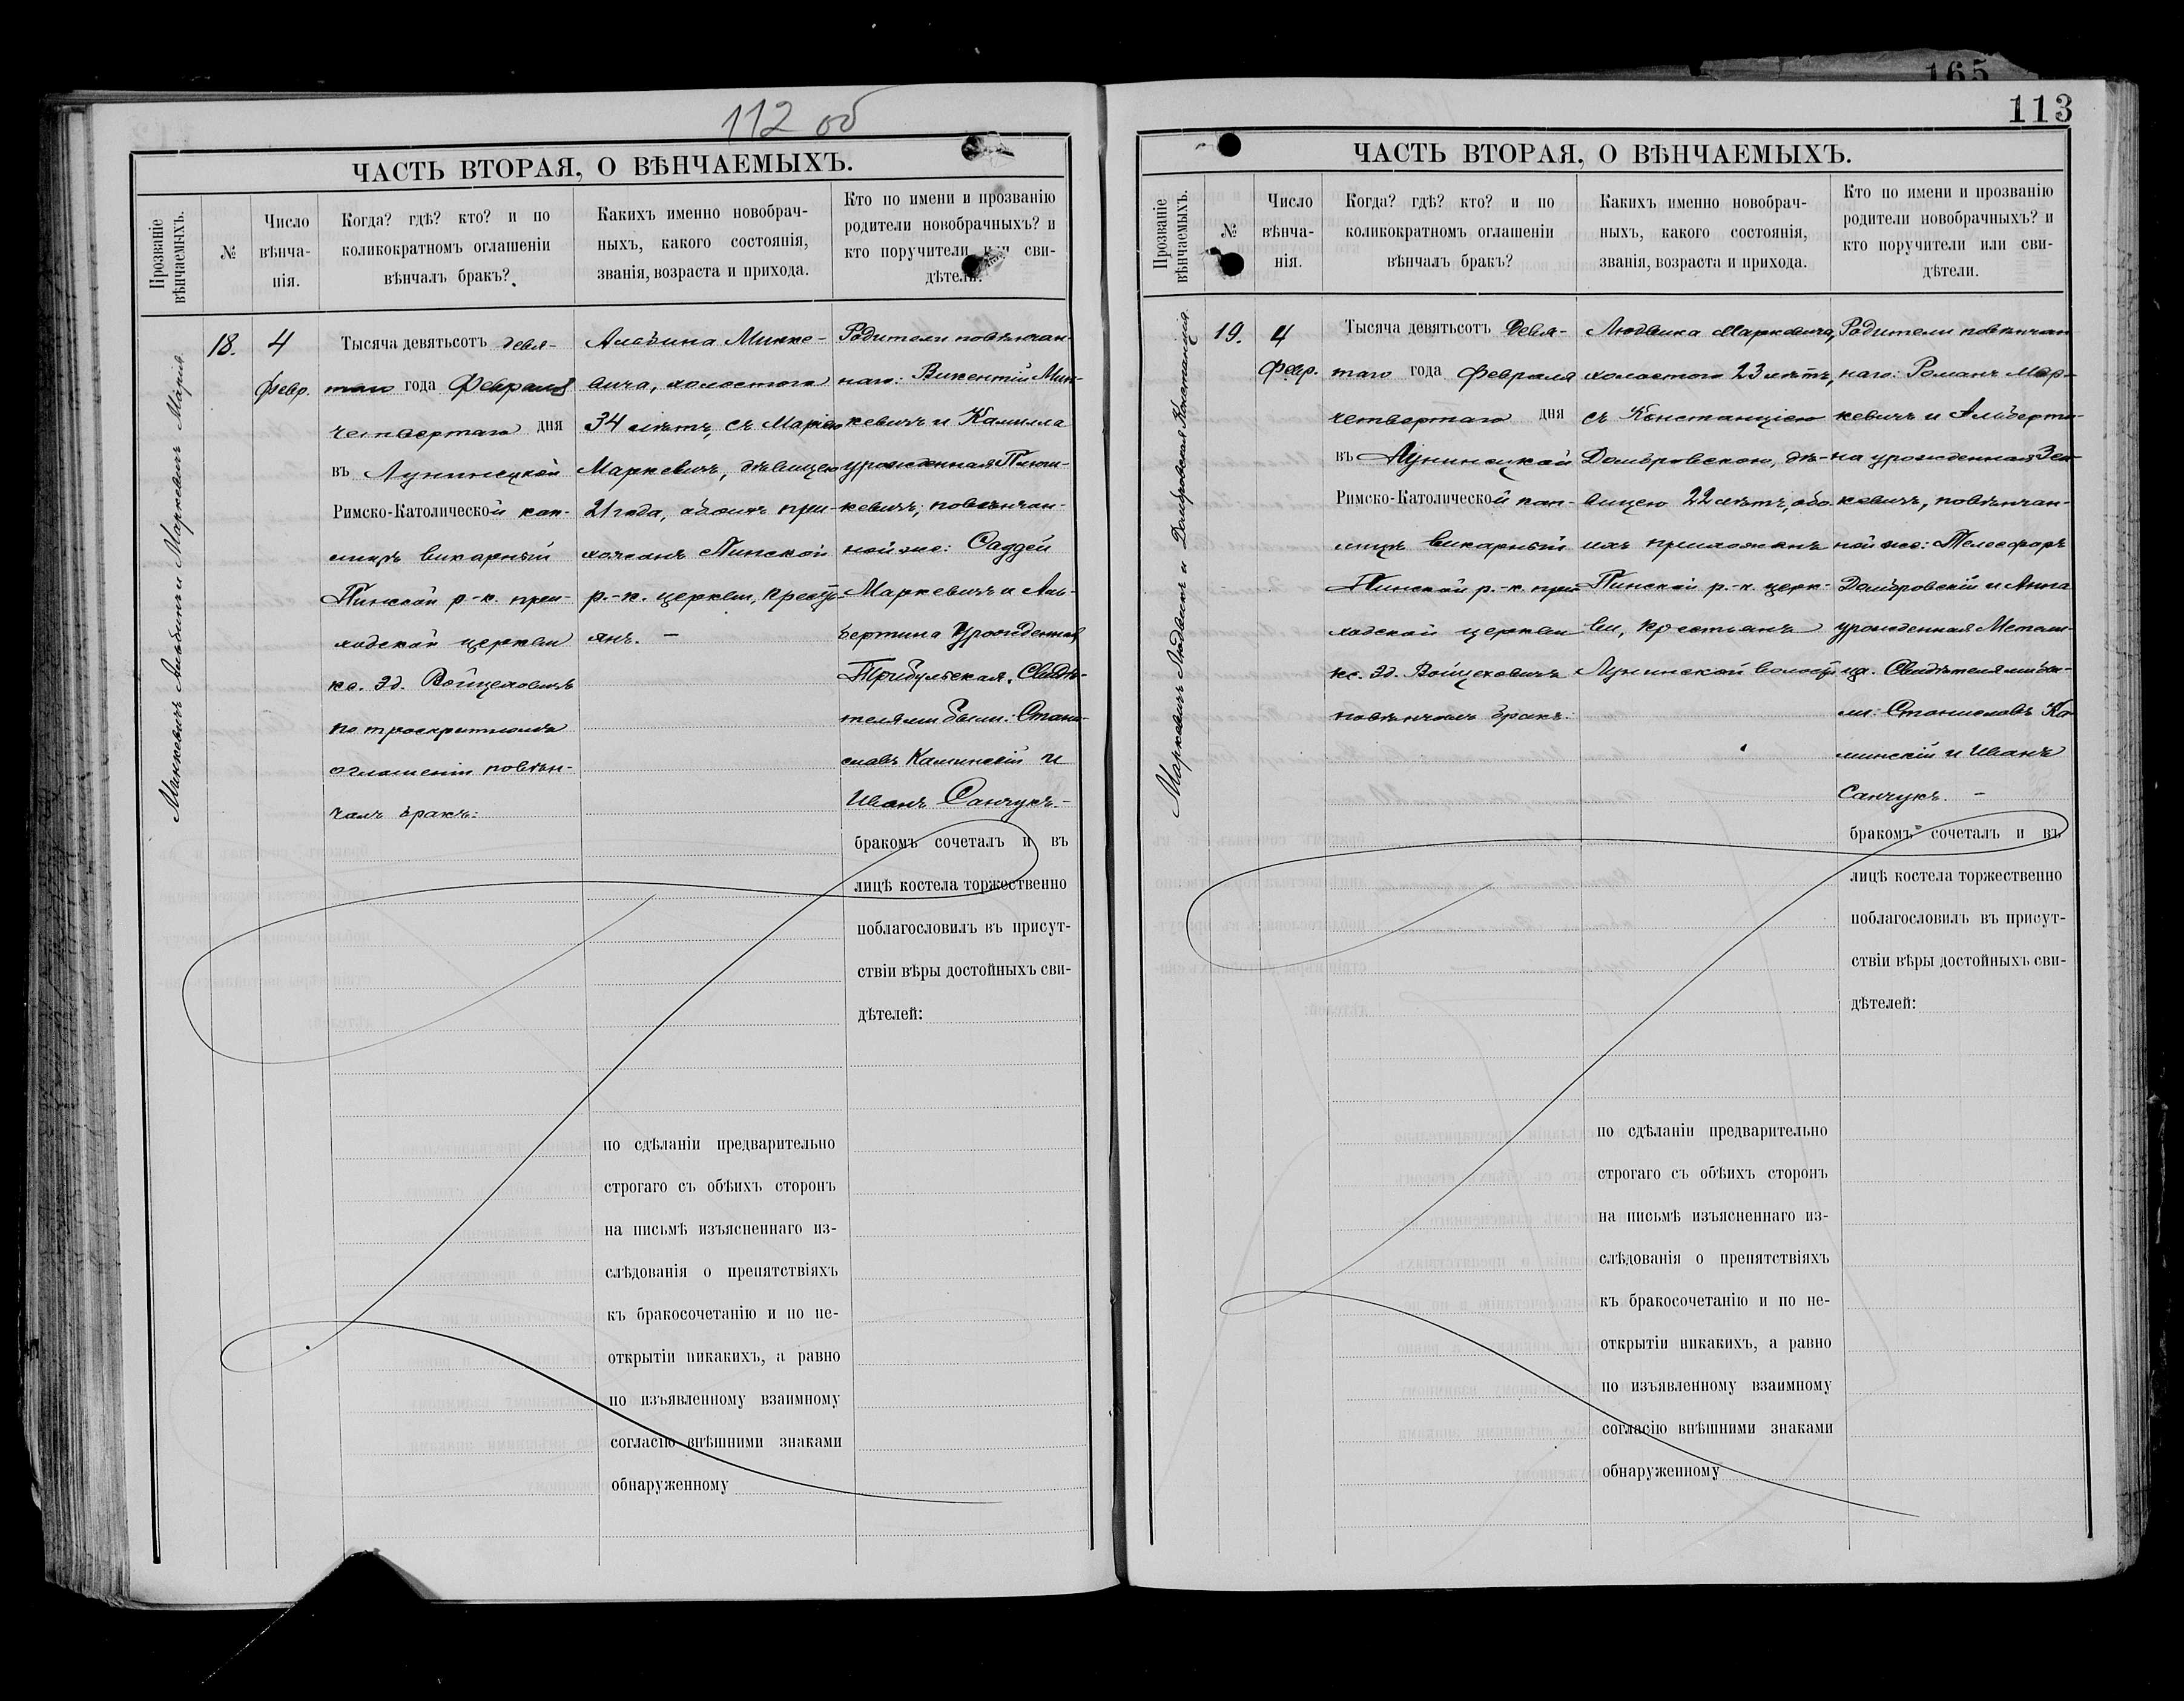 165
112 об
ЧАСТЬ ВТОРАЯ, О ВѢНЧАЕМЫХЪ.
Прозваніе
вѣнчаемыхъ.
№
Число
вѣнча-
нія.
Когда? гдѣ? кто? и по
коликократномъ оглашеніи
вѣнчалъ бракъ?
Какихъ именно новобрач-
ныхъ, какого состоянія,
званія, возраста и прихода.
Кто по имени и прозванію
родители новобрачныхъ? и
кто поручители или сви-
дѣтели.
Минкевичъ Альбинъ и Маркевичъ Марія
18.
4
Февр.
Тысяча девятьсотъ девя-
таго года Февраля
четвертаго дня
въ Лунинецкой
Римско-Католической кап-
лицѣ викарный
Пинской р.-к. при-
ходской церкви
кс. Эд. Войцеховичъ
по троекратномъ
оглашеніи повѣн-
чалъ бракъ:
Альбина Минке-
вича, холостого
34 лѣтъ, съ Маріею
Маркевичъ, дѣвицею
21 года, обоихъ при-
хожанъ Пинской
р.-к. церкви, кресть-
янъ. —
Родители повѣнчан-
наго: Викентій Мин-
кевичъ и Камилла
урожденная
кевичъ; повѣнчан-
ной же: Фаддей
Маркевичъ и Аль-
бертина Урожденная
Трибульская. Свидѣ-
телями были: Стани-
славъ Каминскій и
Иванъ Санчукъ. —
бракомъ сочеталъ и въ
лицѣ костела торжественно
поблагословилъ въ присут-
ствіи вѣры достойныхъ сви-
дѣтелей:
по сдѣланіи предварительно
строгаго съ обѣихъ сторонъ
на письмѣ изъясненнаго из-
слѣдованія о препятствіяхъ
къ бракосочетанію и по не-
открытіи никакихъ, а равно
по изъявленному взаимному
согласію внѣшними знаками
обнаруженному
113
ЧАСТЬ ВТОРАЯ, О ВѢНЧАЕМЫХЪ.
Прозваніе
вѣнчаемыхъ.
№
Число
вѣнча-
нія.
Когда? гдѣ? кто? и по
коликократномъ оглашеніи
вѣнчалъ бракъ?
Какихъ именно новобрач-
ныхъ, какого состоянія,
званія, возраста и прихода.
Кто по имени и прозванію
родители новобрачныхъ? и
кто поручители или сви-
дѣтели.
Маркевичъ Людвикъ и Домбровская Констанція.
19.
4
Февр.
Тысяча девятьсотъ девя-
таго года Февраля
четвертаго дня
въ Лунинецкой
Римско-Католической кап-
лицѣ викарный
Пинской р.-к. при-
ходской церкви
кс. Эд. Войцеховичъ
повѣнчалъ бракъ:
Людвика Маркевича,
холостого 23 лѣтъ,
съ Констанціею
Домбровскою, дѣ-
вицею 22 лѣтъ, обо-
ихъ прихожанъ
Пинской р.-к. церк-
ви, крестьянъ
Лунинской волости
Родители повѣнчан
наго: Романъ Мар-
кевичъ и Альберти-
на урожденная
кевичъ, повѣнчан-
ной же: Телесфоръ
Домбровскій и Анна
урожденная
Свидѣтелями бы-
ли: Станиславъ Ка-
минскій и Иванъ
Санчукъ. —
бракомъ сочеталъ и въ
лицѣ костела торжественно
поблагословилъ въ присут-
ствіи вѣры достойныхъ сви-
дѣтелей:
по сдѣланіи предварительно
строгаго съ обѣихъ сторонъ
на письмѣ изъясненнаго из-
слѣдованія о препятствіяхъ
къ бракосочетанію и по не-
открытіи никакихъ, а равно
по изъявленному взаимному
согласію внѣшними знаками
обнаруженному